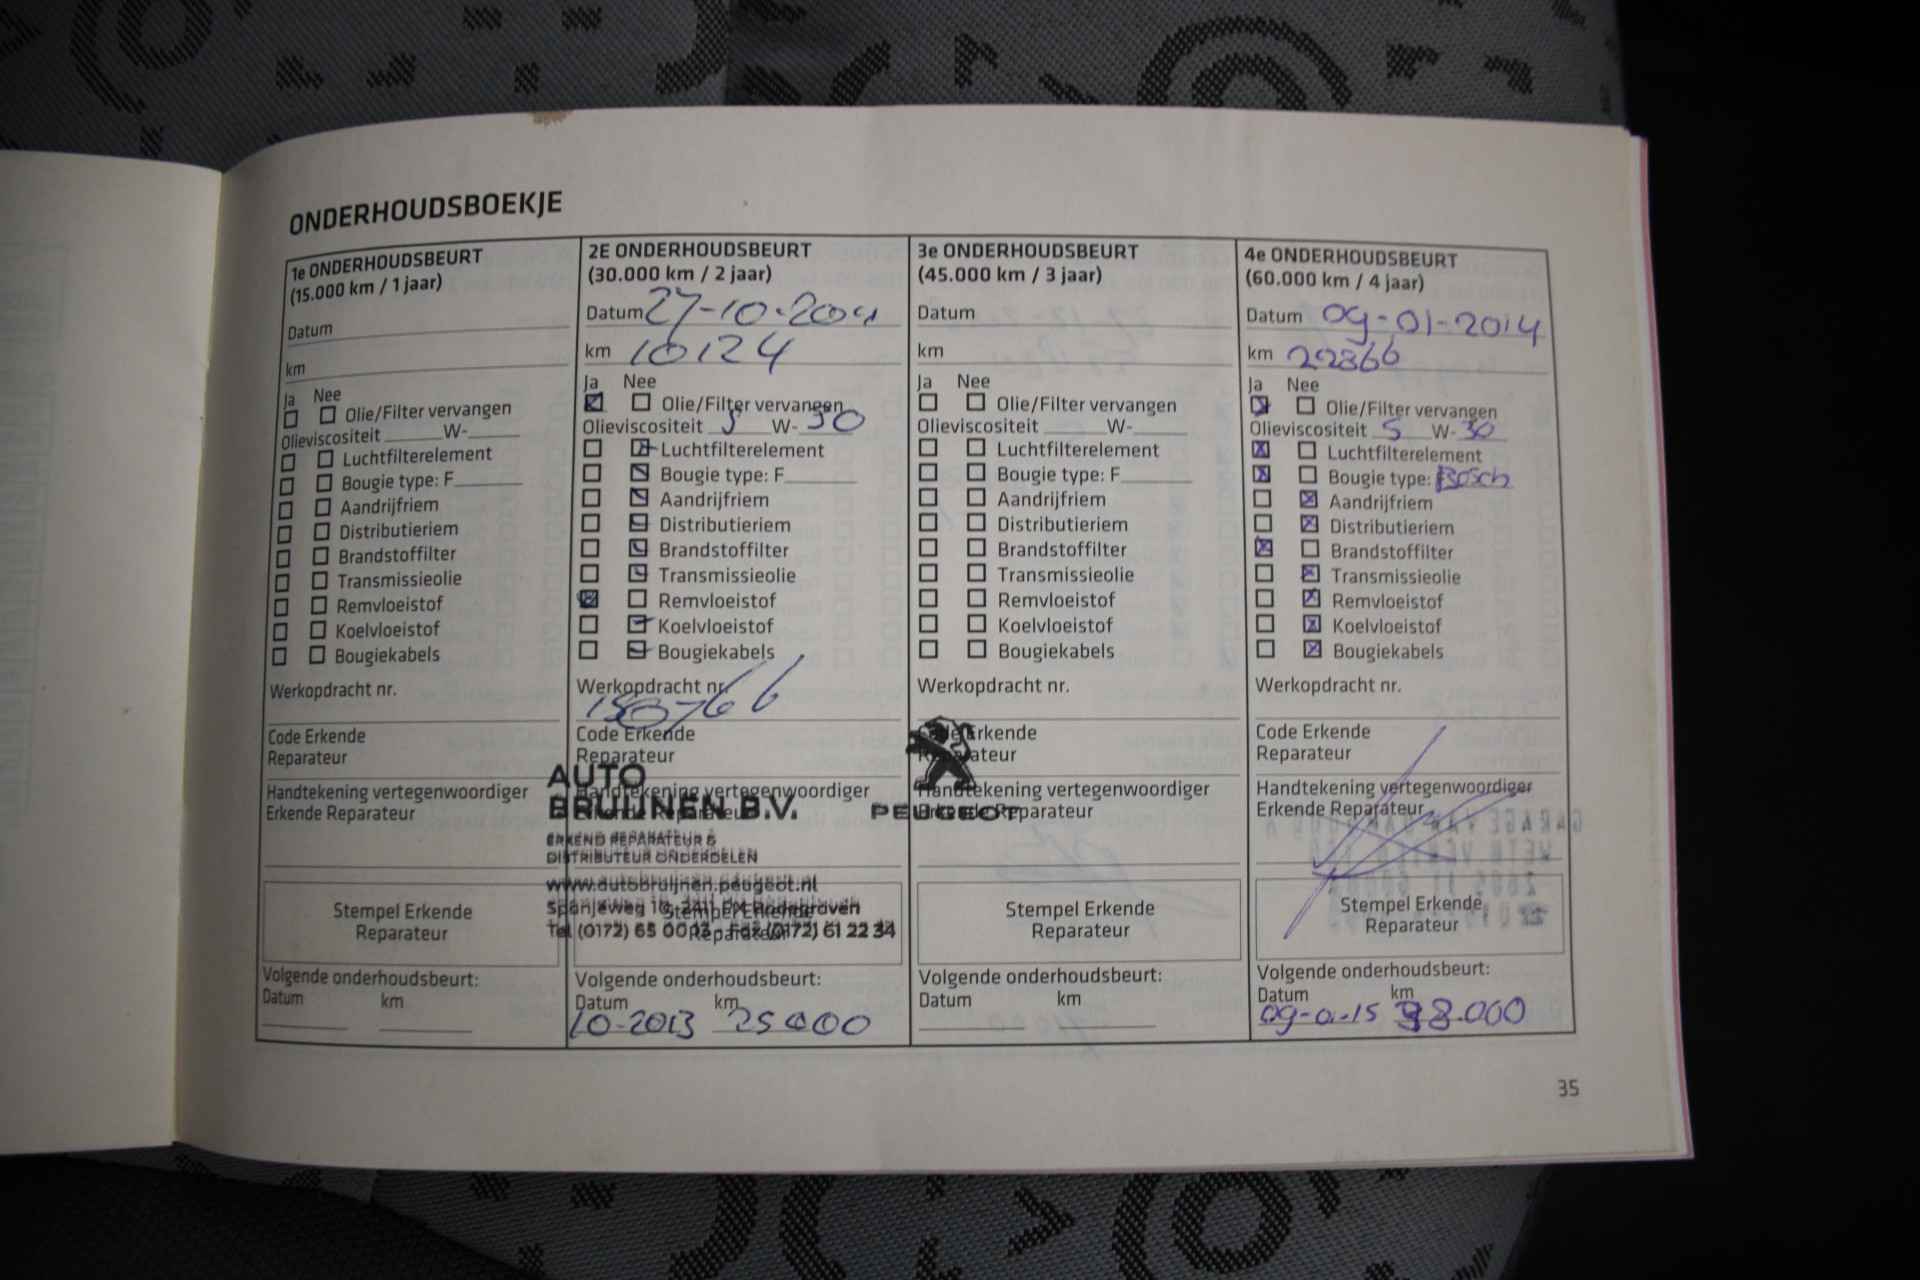 ONDERHOUDSBOEKJE
1e ONDERHOUDSBEURT
(15.000 km / 1 jaar)
Datum
km
Ja Nee
Olie/Filter vervangen
Olieviscositeit ____ W-____
Luchtfilterelement
Bougie type: F____
Aandrijfriem
Distributieriem
Brandstoffilter
Transmissieolie
Remvloeistof
Koelvloeistof
Bougiekabels
Werkopdracht nr.
Code Erkende
Reparateur
Handtekening vertegenwoordiger
Erkende Reparateur
Stempel Erkende
Reparateur
Volgende onderhoudsbeurt:
Datum km
2E ONDERHOUDSBEURT
(30.000 km / 2 jaar)
Datum 27-10-
km 10124
Ja Nee
Olie/Filter vervangen
Olieviscositeit 5 W-30
Luchtfilterelement
Bougie type: F____
Aandrijfriem
Distributieriem
Brandstoffilter
Transmissieolie
Remvloeistof
Koelvloeistof
Bougiekabels
Werkopdracht nr.
150766
Code Erkende
Reparateur
Handtekening vertegenwoordiger
Erkende Reparateur
AUTO
BRUIJNEN B.V. PEUGEOT
ERKEND REPARATEUR &
DISTRIBUTEUR ONDERDELEN
www.autobruijnen.peugeot.nl
Spanjeweg 10, 2411 PX Bodegraven
Tel (0172) 65 00 13 - Fax (0172) 61 22 34
Stempel Erkende
Reparateur
Volgende onderhoudsbeurt:
Datum km
10-2013 25000
3e ONDERHOUDSBEURT
(45.000 km / 3 jaar)
Datum
km
Ja Nee
Olie/Filter vervangen
Olieviscositeit ____ W-____
Luchtfilterelement
Bougie type: F____
Aandrijfriem
Distributieriem
Brandstoffilter
Transmissieolie
Remvloeistof
Koelvloeistof
Bougiekabels
Werkopdracht nr.
Code Erkende
Reparateur
Handtekening vertegenwoordiger
Erkende Reparateur
Stempel Erkende
Reparateur
Volgende onderhoudsbeurt:
Datum km
4e ONDERHOUDSBEURT
(60.000 km / 4 jaar)
Datum 09-01-2014
km 22866
Ja Nee
Olie/Filter vervangen
Olieviscositeit 5 W-30
Luchtfilterelement
Bougie type: Bosch
Aandrijfriem
Distributieriem
Brandstoffilter
Transmissieolie
Remvloeistof
Koelvloeistof
Bougiekabels
Werkopdracht nr.
Code Erkende
Reparateur
Handtekening vertegenwoordiger
Erkende Reparateur
Stempel Erkende
Reparateur
Volgende onderhoudsbeurt:
Datum km
09-01-15 38.000
35